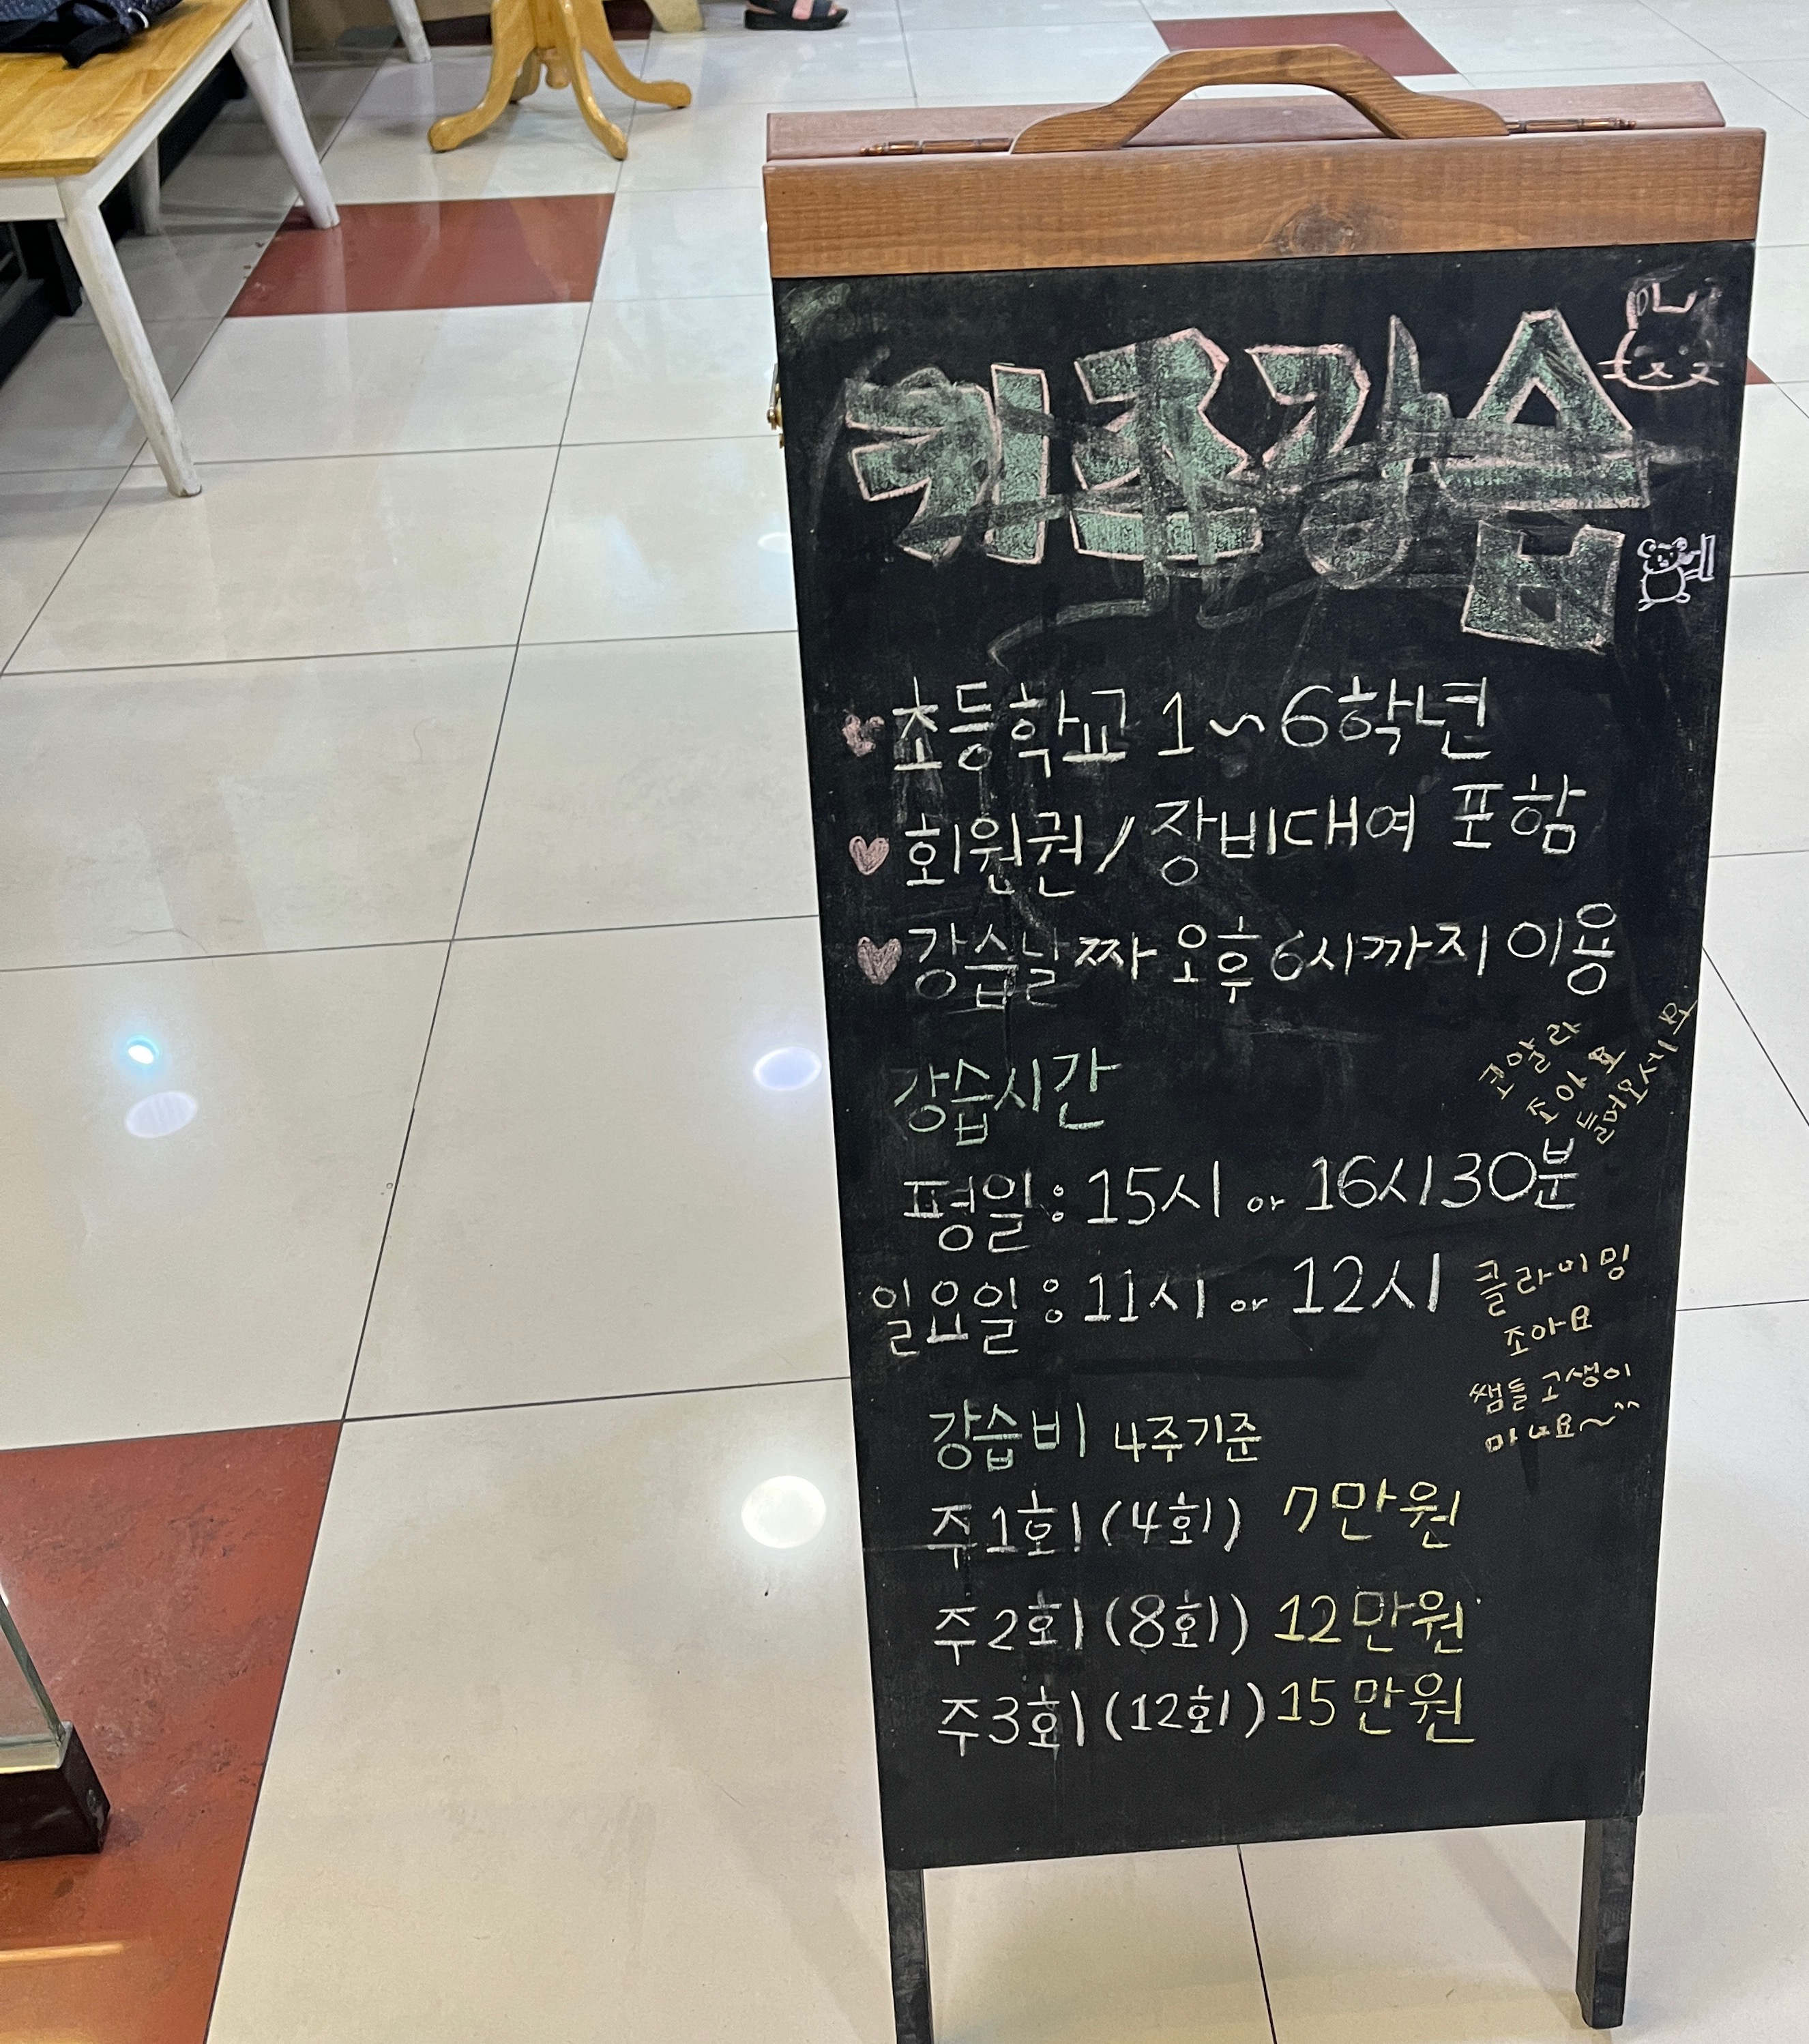 키즈강습
초등학교 1~6학년
회원권/장비대여 포함
강습날짜 오후6시까지 이용
코알라
조아요
들머오세요
강습시간
평일: 15시 or 16시30분
일요일: 11시 or 12시
클라이밍
조아요
쌤들 고생이
마너요~^^
강습비 4주기준
주1회(4회) 7만원
주2회(8회) 12만원
주3회(12회) 15만원